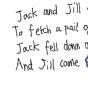 Jack and Jill
To fetch a pail of
Jack fell down
And Jill came